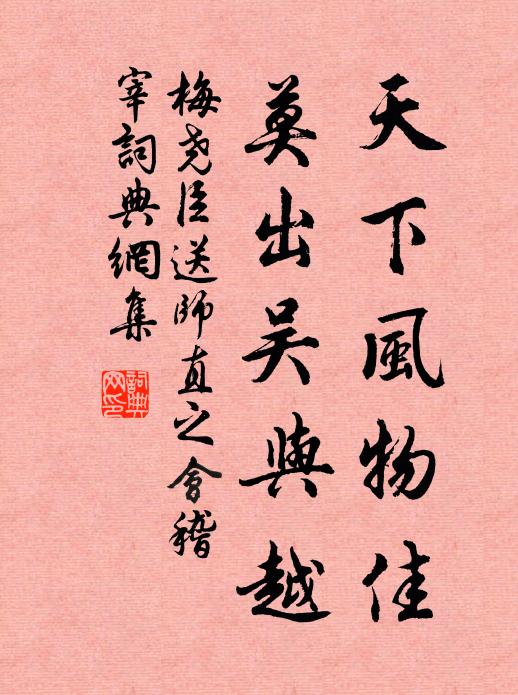 天下風物佳
莫出吴與越
梅尧臣送師直之會稽
宰詞典網集
詞典
网印